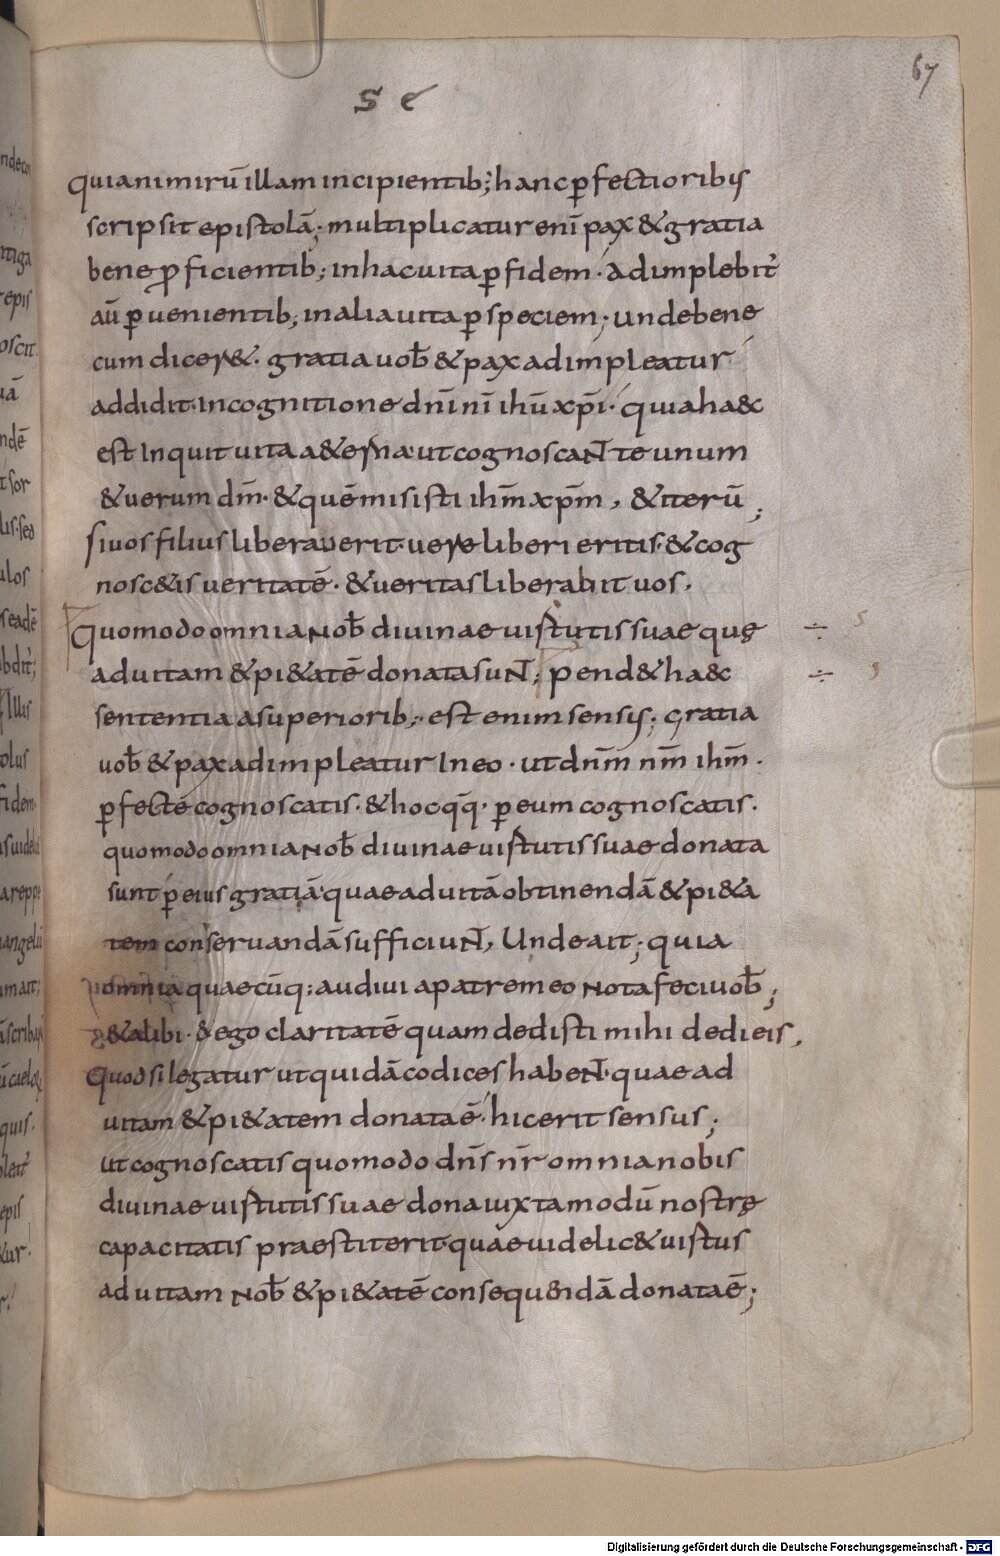 67
S e
quianimirū illam incipientib; hanc ꝑfectioribus
scripsit epistolā; multiplicatur enī pax & gratia
bene ꝓficientib; in hac uita ꝑ fidem · adimplebit᷑
aū ꝑuenientib; in alia uita ꝑ speciem; unde bene
cum diceret · gratia uob̄ & pax adimpleatur
addidit · in cognitione dn̄i nī ihū xp̄i · quia haec
est Inquit uita aeterna · ut cognoscant te unum
& uerum dm̄ · & quē misisti ihm̄ xp̄m , & iterū ;
Si uos filius liberauerit · uere liberi eritis · & cog
noscetis ueritatē · & ueritas liberabit uos ·
Quomodo omnia Nob̄ diuinae uirtutis suae quę
ad uitam & pietatē donata suNT; pendet haec
sententia a superiorib; est enim sensus; gratia
uob̄ & pax adimpleatur In eo · ut dn̄m nm̄ ihm̄ ·
ꝑfecte cognoscatis · & hoc qq̄ · ꝑ eum cognoscatis ·
quomodo omnia Nob̄ diuinae uirtutis suae donata
sunt ꝑ eius gratiā quae ad uitā obtinendā & pieta
tem conseruandā sufficiuNT, Unde ait; quia
omnia quaecūq; audiui a patre meo Nota feci uob̄ ;
& alibi · & ego claritatē quam dedisti mihi dedi eis ,
Quod si legatur ut quidā codices habeNT · quae ad
uitam & pietatem donata ē · hic erit sensus ;
ut cognoscatis quomodo dn̄s nr̄ omnia nobis
diuinae uirtutis suae dona iuxta modū nostrę
capacitatis praestiterit · quae uidelicet uirtus
ad uitam Nob̄ & pietatē consequendā donata ē ;
Digitalisierung gefördert durch die Deutsche Forschungsgemeinschaft - DFG